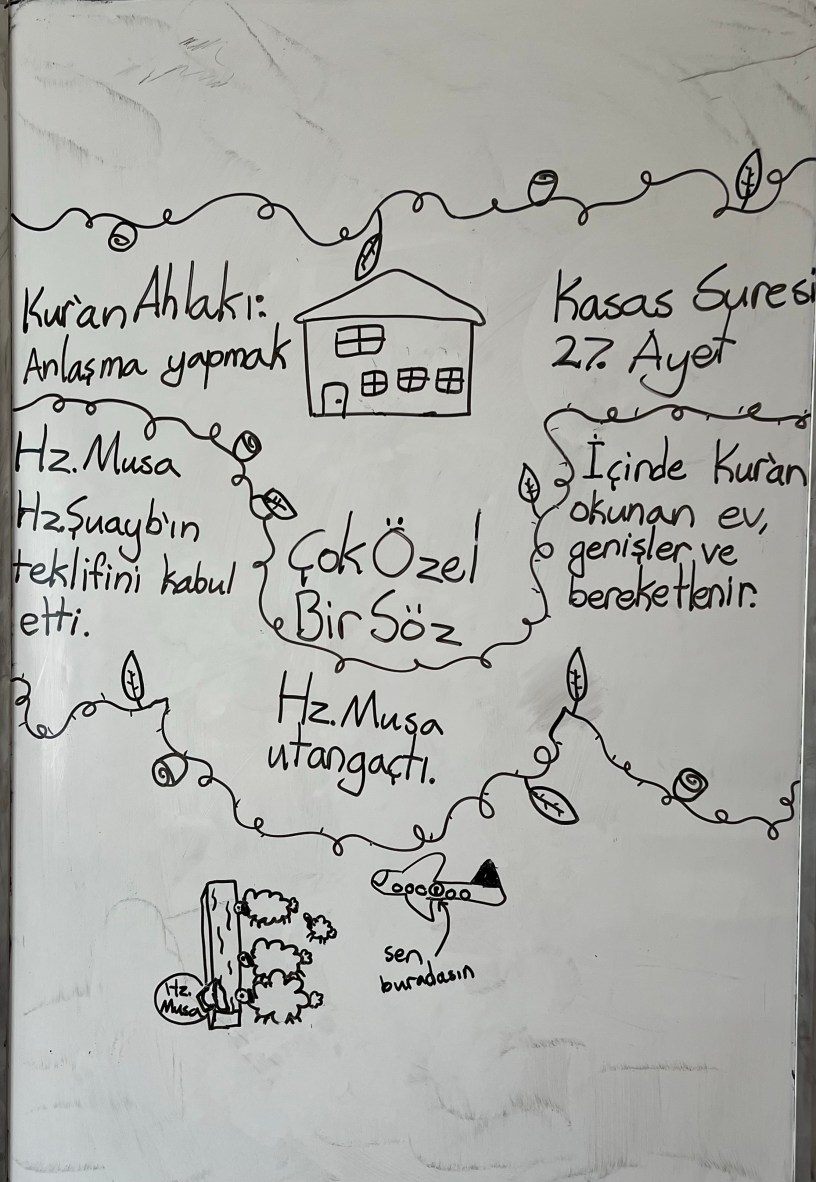 Kur'an Ahlakı:
Anlaşma yapmak
Kasas Suresi
27. Ayet
Hz. Musa
Hz. Şuayb'ın
teklifini kabul
etti.
Çok Özel
Bir Söz
İçinde Kur'an
okunan ev,
genişler ve
bereketlenir.
Hz. Musa
utangaçtı.
Hz.
Musa
sen
buradasın